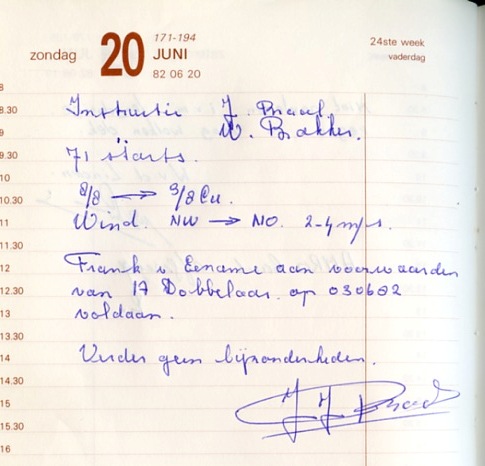 zondag 20 JUNI
171-194
82 06 20
24ste week
vaderdag
8
8.30
9
9.30
10
10.30
11
11.30
12
12.30
13
13.30
14
14.30
15
15.30
16
Instructie J.
W. Bakker.
71 starts.
8/8 → 3/8 Cu.
Wind. NW → NO. 2-4 m/s.
Frank v Eename aan voorwaarden
van 17 Dobbelaar op 030682
voldaan.
Verder geen bijzonderheden.